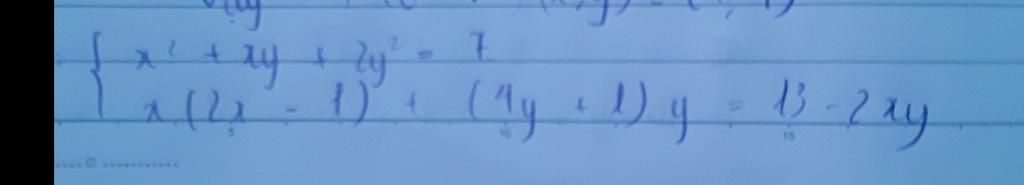 x² + xy + 2y² = 7
x(2x - 1) + (4y + 1)y = 13 - 2xy